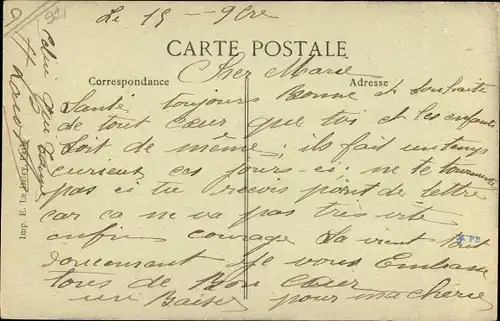 Le 15 - 9bre
CARTE POSTALE
Correspondance
Adresse
Cher Marie
Santé toujours Bonne et souhaite
de tout cœur que toi et les enfants
soit de même ; ils fait un temps
curieux ces jours-ci, ne te tourmente
pas ci tu recois point de lettre
car ca ne va pas très vite
enfin courage sa vient tout
doucement Je vous Embrasse
tous de Bon cœur
un Baiser pour ma chérie
Imp. E. Le Deley, Paris